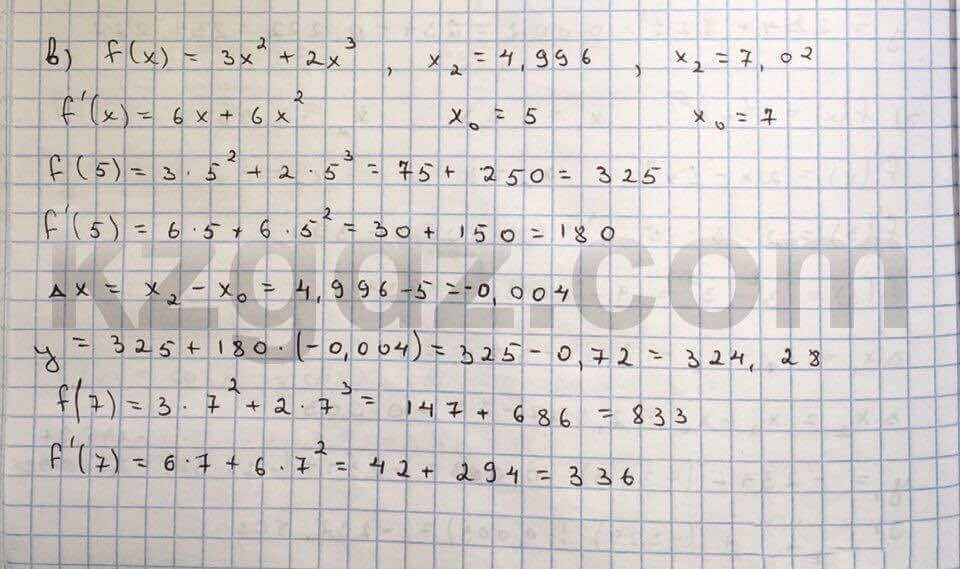 в) f(x) = 3x² + 2x³ , x₂ = 4,996 , x₂ = 7,02
f'(x) = 6x + 6x² x₀ = 5 x₀ = 7
f(5) = 3 · 5² + 2 · 5³ = 75 + 250 = 325
f'(5) = 6 · 5 + 6 · 5² = 30 + 150 = 180
kzgdz.com
Δx = x₂ - x₀ = 4,996 - 5 = -0,004
y = 325 + 180 · (-0,004) = 325 - 0,72 = 324,28
f(7) = 3 · 7² + 2 · 7³ = 147 + 686 = 833
f'(7) = 6 · 7 + 6 · 7² = 42 + 294 = 336